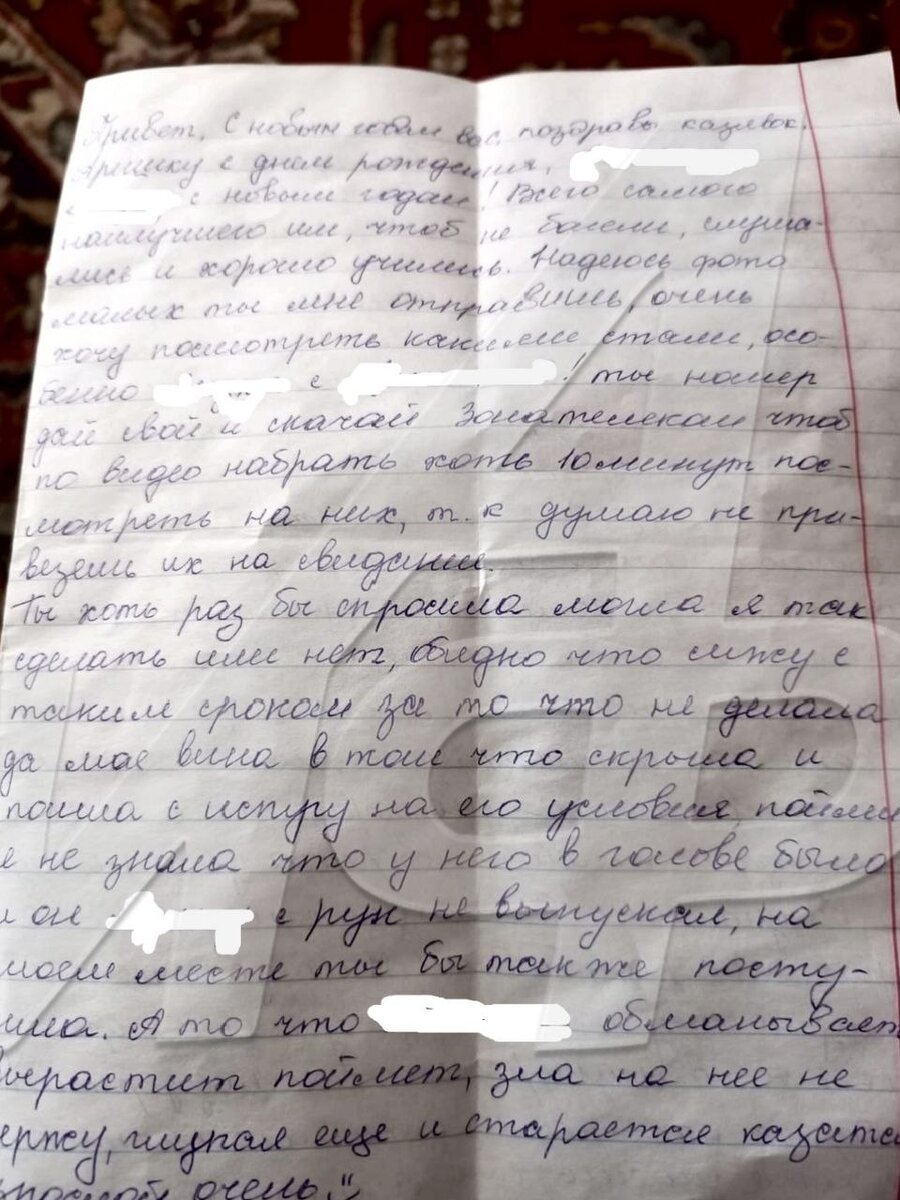 Привет. С новым годом вас, поздравь казявок.
Аришку с днем рождения,
с новым годом! Всего самого
наилучшего им, чтоб не болели, слуша-
лись и хорошо учились. Надеюсь фото
малых ты мне отправишь, очень
хочу посмотреть какими стали, осо-
бенно с ! ты номер
дай свой и скачай Зонателеком чтоб
по видео набрать хоть 10 минут пос-
мотреть на них, т.к думаю не при-
везешь их на свидание.
Ты хоть раз бы спросила могла я так
сделать или нет, обидно что сижу с
таким сроком за то что не делала
да моя вина в том что скрыла и
пошла с испугу на его условия, пойми
я не знала что у него в голове было
и он с рук не выпускал, на
моем месте ты бы также посту-
пила. А то что обманывает
вырастит поймет, зла на нее не
держу, глупая еще и старается казаться
взрослой очень."